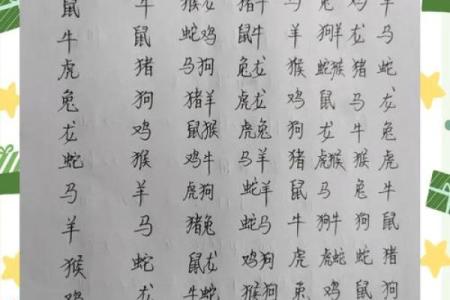 鼠 牛 猴龙 猪牛 马 兔 鸡 羊
牛 鼠 蛇鸡 鼠牛 羊 狗羊 龙 马
虎 猪 马狗 兔龙 猴 蛇猴 猪 蛇
兔 狗 猪羊 虎龙 鸡 鼠 马 龙
龙 鸡 鼠猴 虎兔 狗 龙 牛 兔
蛇 猴 鸡牛 马羊 猪 虎猴 猴 虎
马 羊 虎狗 蛇羊 鼠 马 兔 牛
羊 马 猪兔 蛇马 牛 狗牛 狗 鼠
猴 蛇 鼠龙 鸡狗 虎 虎蛇 蛇 猪
鸡 龙 牛蛇 猴狗 兔 鸡 鼠 狗